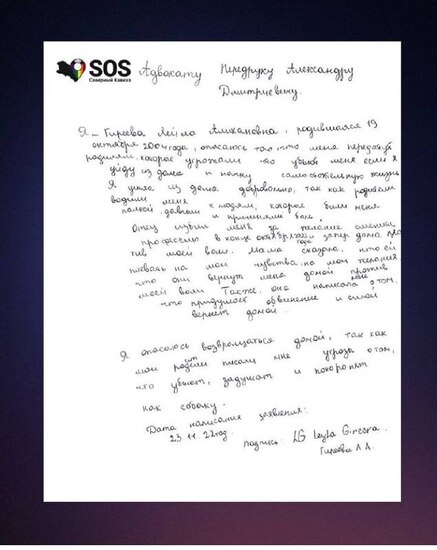 SOS
Северный Кавказ
Адвокату Передруку Александру
Дмитриевичу.
Я – Гиреева Лейла Алихановна, родившаяся 19
октября 2004 года, опасаюсь того что меня передадут
родным, которые угрожали что убьют меня если я
уйду из дома и начну самостоятельную жизнь
Я ушла из дома добровольно, так как родители
водили меня к людям, которые били меня
палкой, давили и причиняли боль.
Отец избил меня за желание сменить
профессию в конце октября и запер дома, про
тив моей воли. Мама сказала, что ей
плевать на мои чувства, на мои желания
что они вернут меня домой против
моей воли Также, она написала мне о том,
что придумает обвинение и силой
вернет домой.
Я опасаюсь возвращаться домой, так как
мои родители писали мне угрозы о том,
что убьют, задушат и похоронят
как собаку.
Дата написания заявления:
23.11.22 год. подпись: LG Leyla Gireeva
Гиреева Л.А.